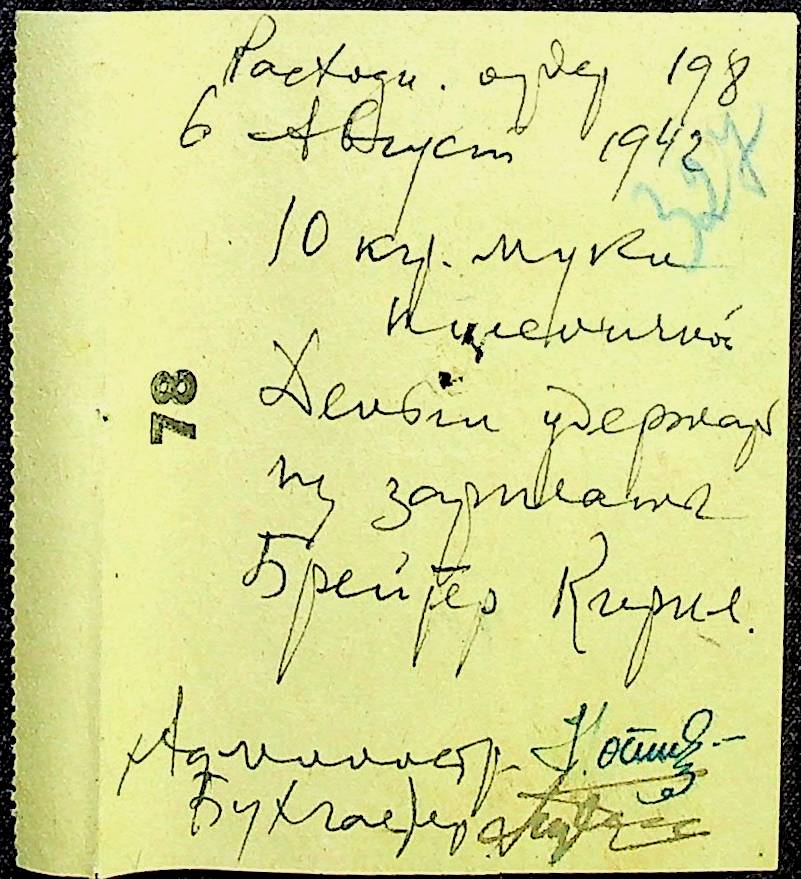 Расходн. ордер 198
6 Август 1942
327
10 кг. муки
пшеничной
78
Деньги удержат
из зарплаты
Брейтер Кирил.
Администр.
Бухгалтер